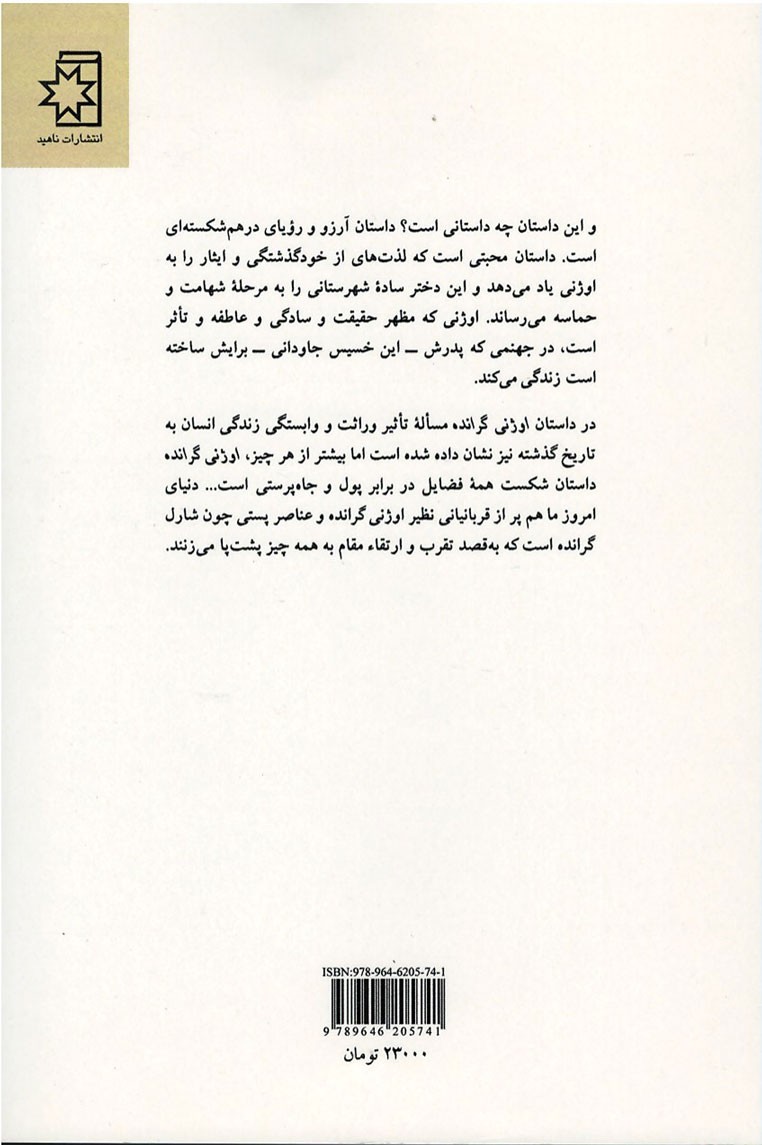 انتشارات ناهید
و این داستان چه داستانی است؟ داستان آرزو و رؤیای درهم‌شکسته‌ای
است. داستان محبتی است که لذت‌های از خودگذشتگی و ایثار را به
اوژنی یاد می‌دهد و این دختر سادهٔ شهرستانی را به مرحلهٔ شهامت و
حماسه می‌رساند. اوژنی که مظهر حقیقت و سادگی و عاطفه و تأثر
است، در جهنمی که پدرش ـ این خسیس جاودانی ـ برایش ساخته
است زندگی می‌کند.
در داستان اوژنی گرانده مسألهٔ تأثیر وراثت و وابستگی زندگی انسان به
تاریخ گذشته نیز نشان داده شده است اما بیشتر از هر چیز، اوژنی گرانده
داستان شکست همهٔ فضایل در برابر پول و جاه‌پرستی است... دنیای
امروز ما هم پر از قربانیانی نظیر اوژنی گرانده و عناصر پستی چون شارل
گرانده است که به‌قصد تقرب و ارتقاء مقام به همه چیز پشت‌پا می‌زنند.
ISBN:978-964-6205-74-1
9 789646 205741
۲۳۰۰۰ تومان